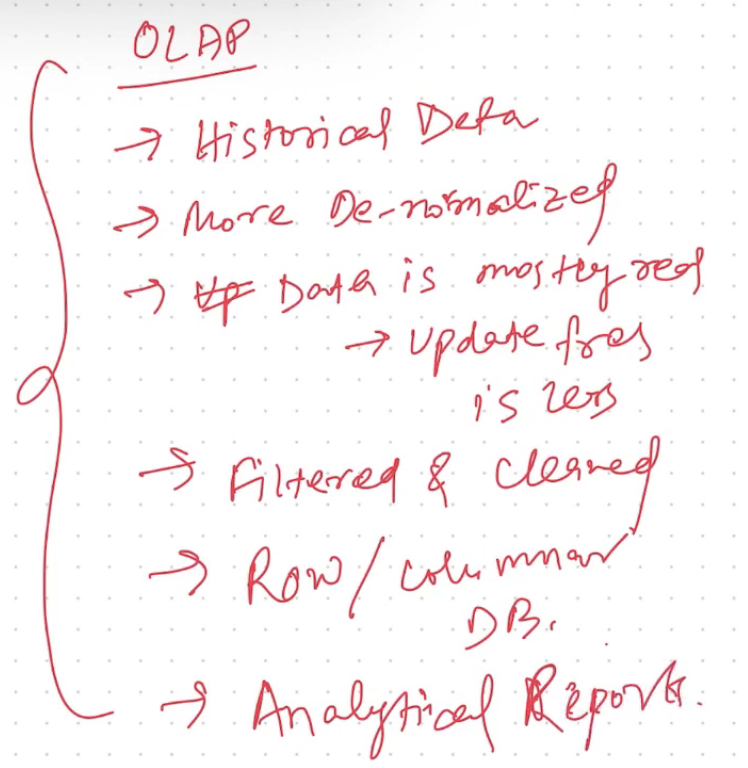 OLAP
→ Historical Data
→ More De-normalized
→ Data is mostly read
→ Update freq
is less
→ Filtered & cleaned
→ Row/columnar
DB.
→ Analytical Report.